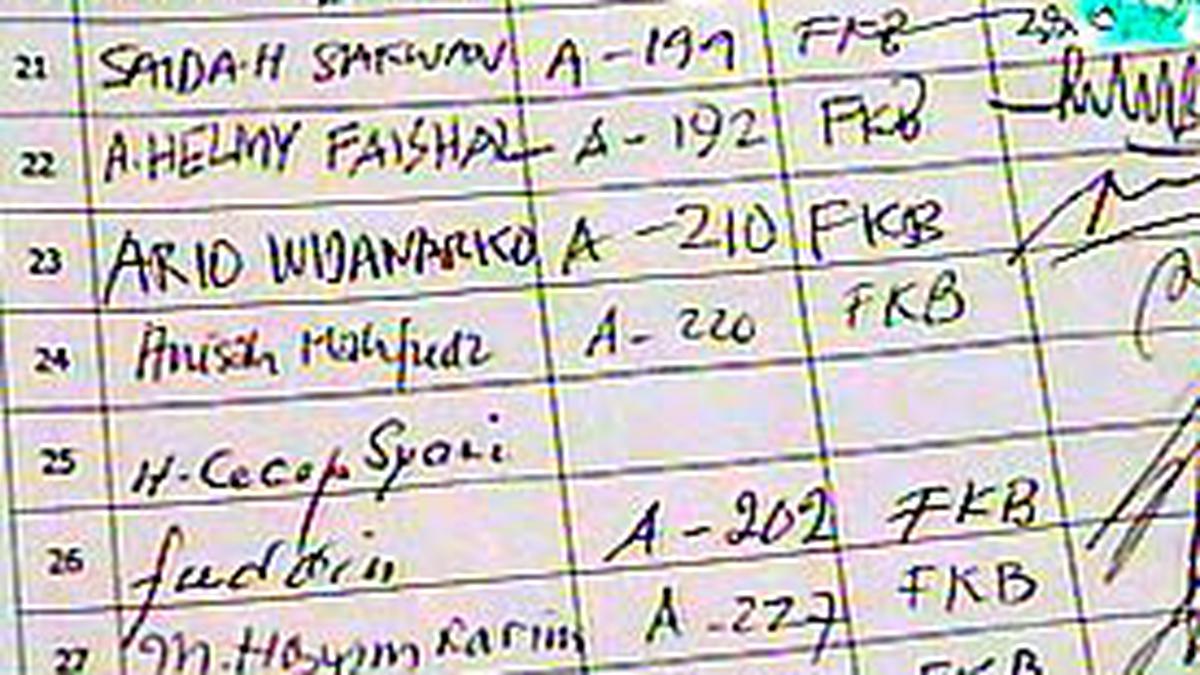 21 SAIDAH SAKWAN A - 199 FKB
22 A. HELMY FAISHAL A - 192 FKB
23 ARIO WIJANARKO A - 210 FKB
24 Anisah Mahfudz A - 220 FKB
25 H. Cecep Syari
26 fuddin A - 202 FKB
27 M. Hasyim Karim A - 227 FKB
FKB